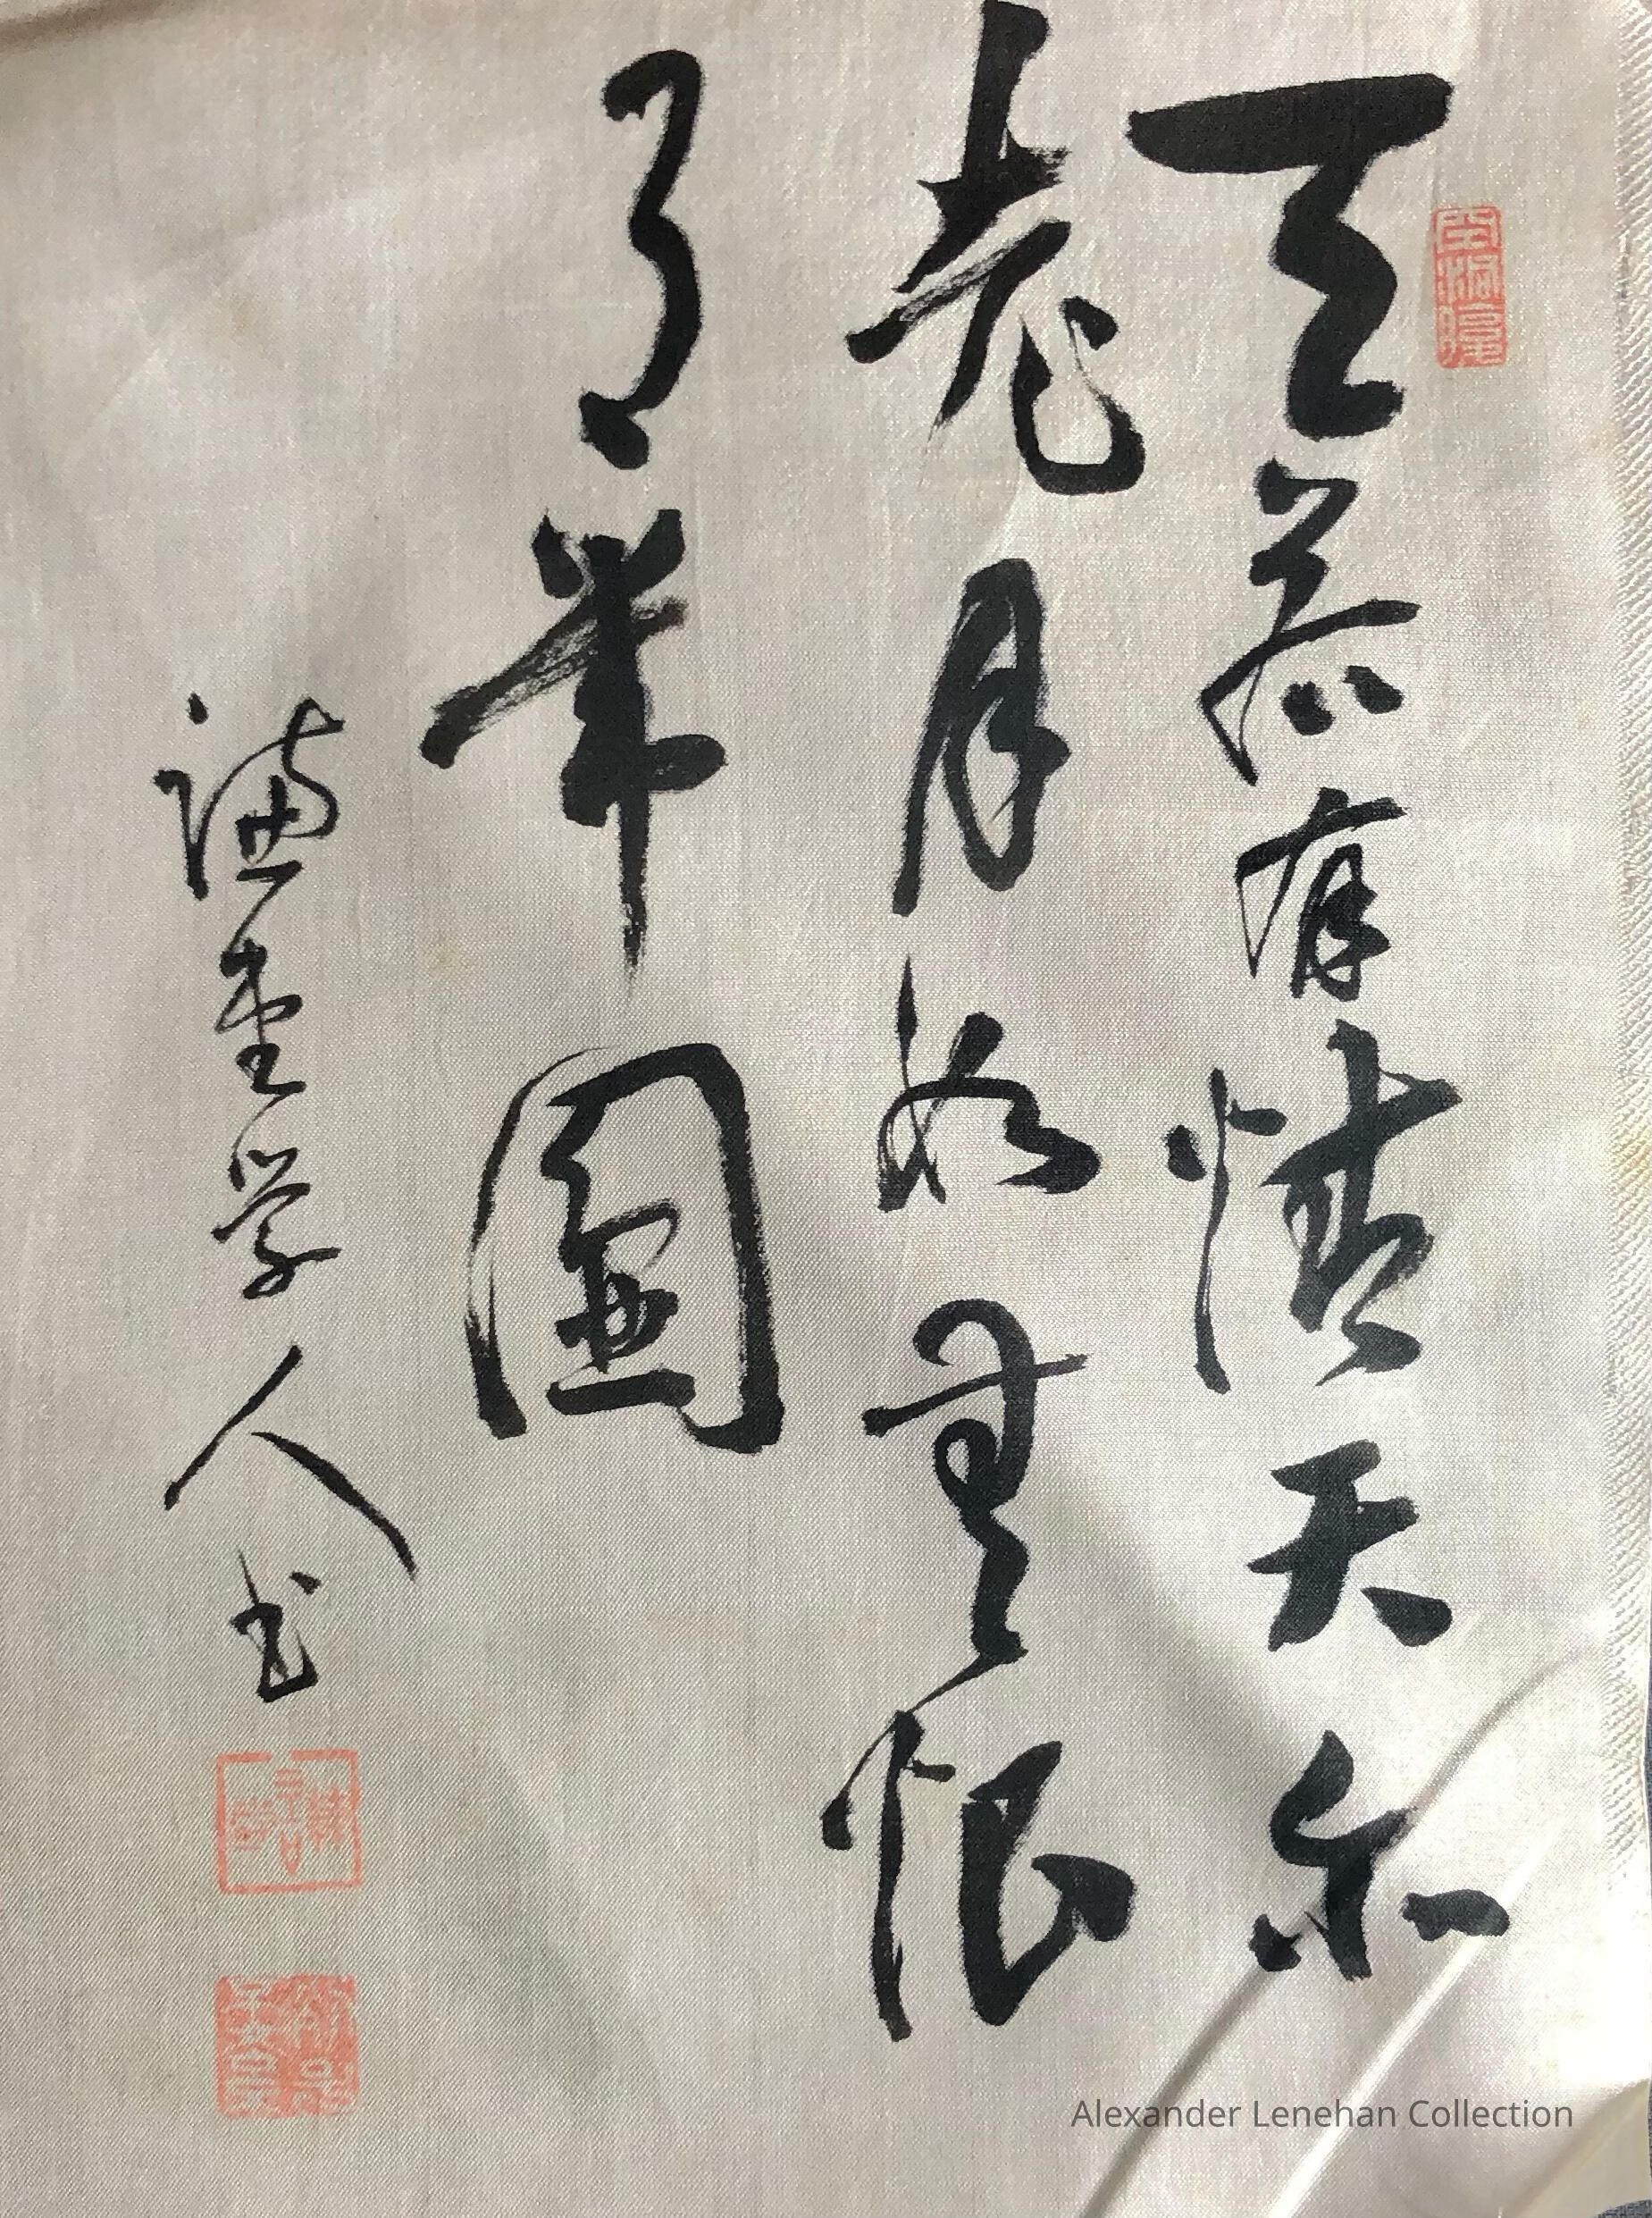 天若有情天亦
老月如無恨
月常圓
謙堂学人书
Alexander Lenehan Collection